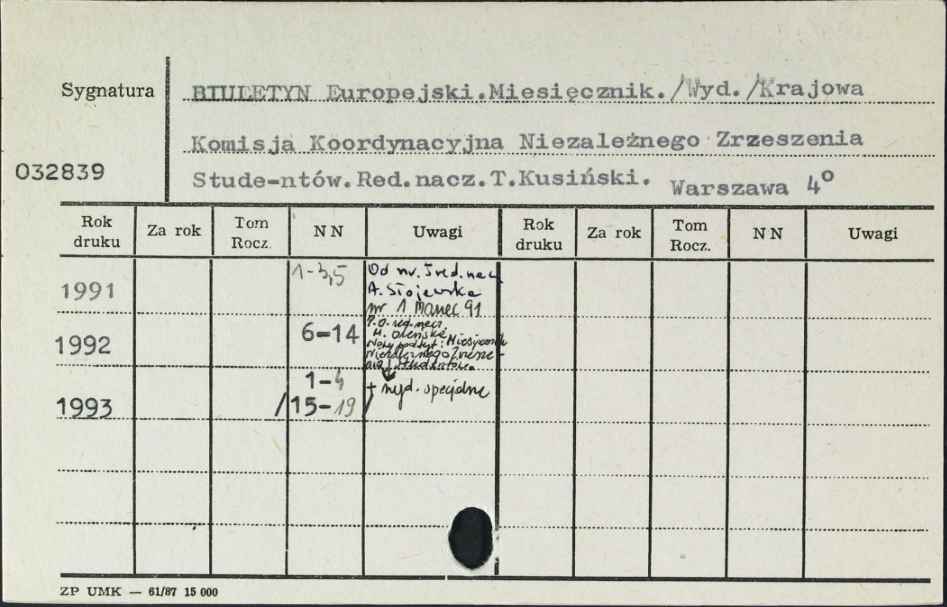 Sygnatura
BIULETYN Europejski.Miesięcznik./Wyd./Krajowa
Komisja Koordynacyjna Niezależnego Zrzeszenia
032839
Stude-ntów.Red.nacz.T.Kusiński. Warszawa 4º
Rok druku Za rok Tom Rocz. NN Uwagi Rok druku Za rok Tom Rocz. NN Uwagi
1991 1-3,5 Od nr. 5 red. nacz.
A. Stojewska
nr 1 Marzec 91
1992 6-14 P.O. red. nacz.
Nowy podtyt: Miesięcznik
Niezależnego Zrzesze-
nia Studentów.
1993 1-4 + wyd. specjalne
/15-19/
ZP UMK — 61/87 15 000